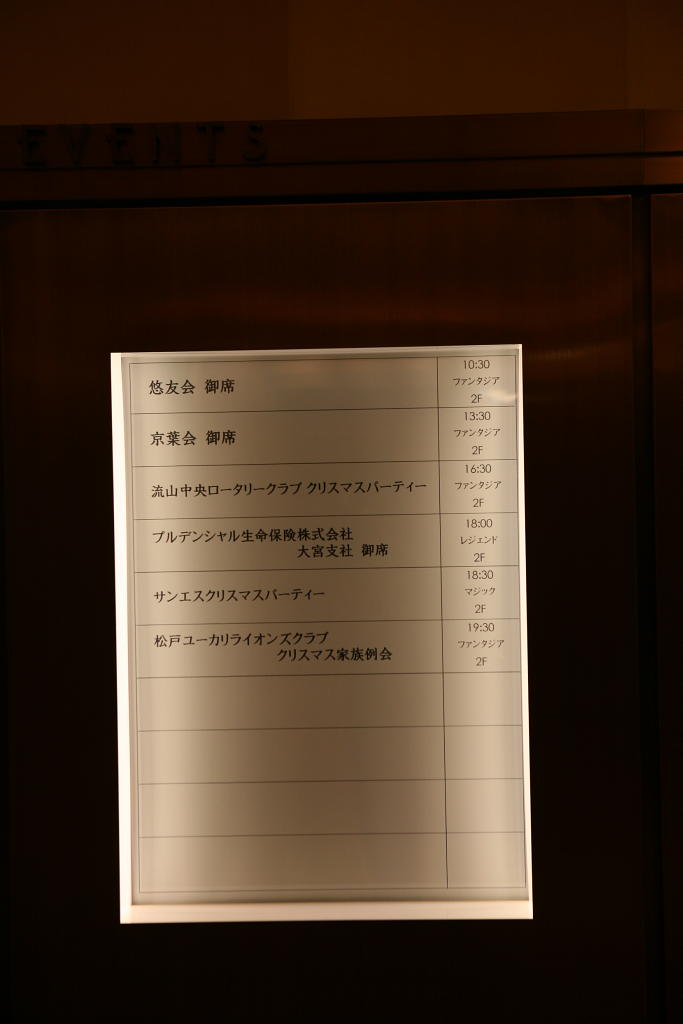 EVENTS
悠友会 御席
10:30
ファンタジア
2F
京葉会 御席
13:30
ファンタジア
2F
流山中央ロータリークラブ クリスマスパーティー
16:30
ファンタジア
2F
プルデンシャル生命保険株式会社
大宮支社 御席
18:00
レジェンド
2F
サンエスクリスマスパーティー
18:30
マジック
2F
松戸ユーカリライオンズクラブ
クリスマス家族例会
19:30
ファンタジア
2F